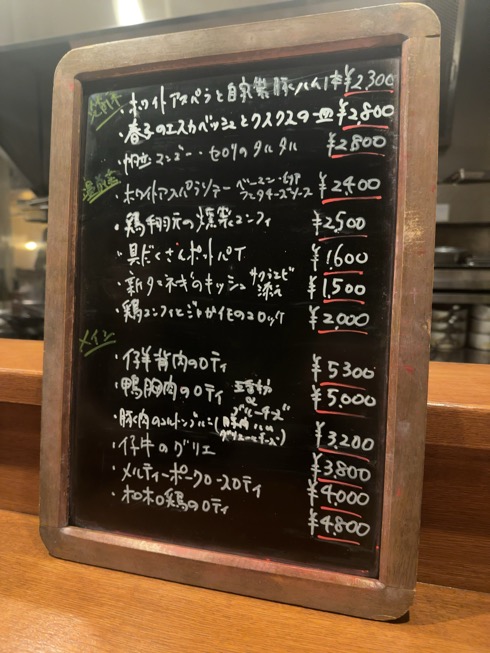 冷前菜
・ホワイトアスパラと自家製豚ハム 1本 ¥2,300
・春子のエスカベッシュとクスクスの一皿 ¥2,800
・帆立 マンゴー・セロリのタルタル ¥2,800
温前菜
・ホワイトアスパラソテー ¥2,400
・鶏手羽元の燻製コンフィ ¥2,500
・具だくさんポットパイ ¥1,600
・新タマネギのキッシュ サクラエビ添え ¥1,500
・鶏コンフィとジャガイモのコロッケ ¥2,000
メイン
・仔羊背肉のロティ ¥5300
・鴨胸肉のロティ ¥5,000
・豚肉のコルドンブルー (自家製ハム グリュイエールチーズ) ¥3,200
・仔牛のグリエ ¥3,800
・メルティーポークロースロティ ¥4,000
・和木口鶏のロティ ¥4,800